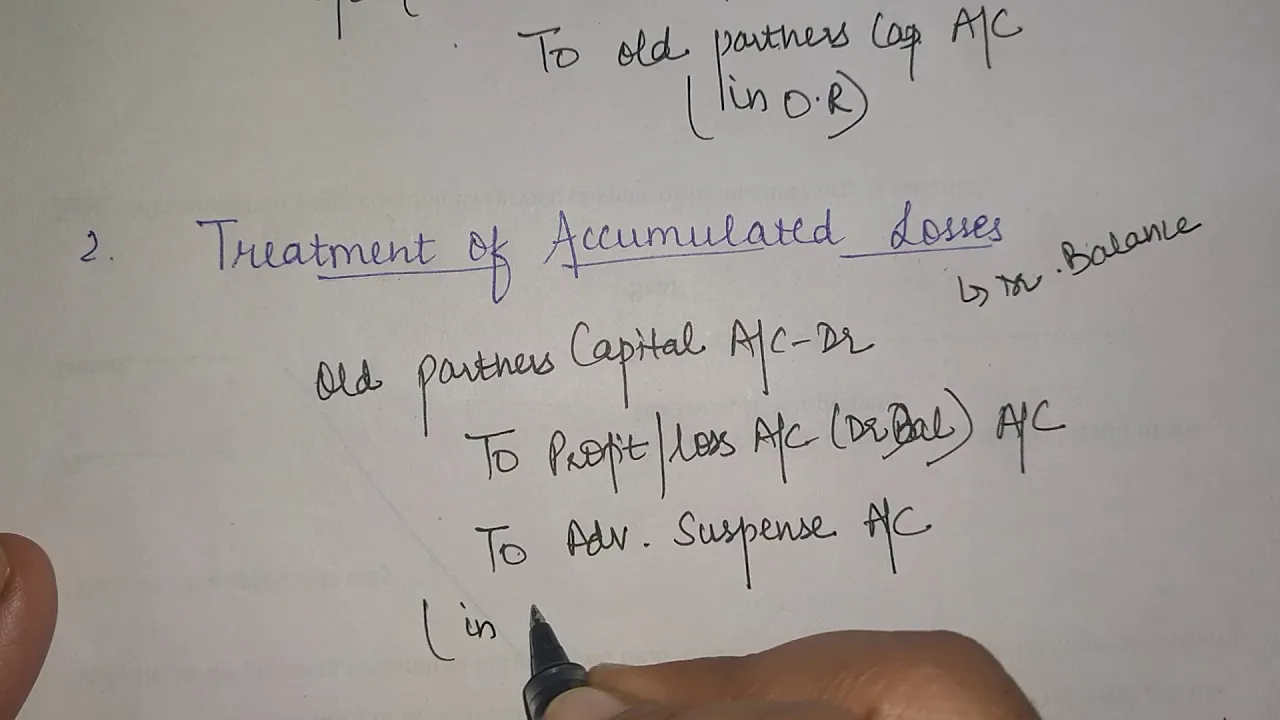 To old partners Cap A/C
(in O.R)
2. Treatment of Accumulated Losses
↳ Dr. Balance
Old partners Capital A/C-Dr
To Profit/loss A/C (Dr Bal) A/C
To Adv. Suspense A/C
(in